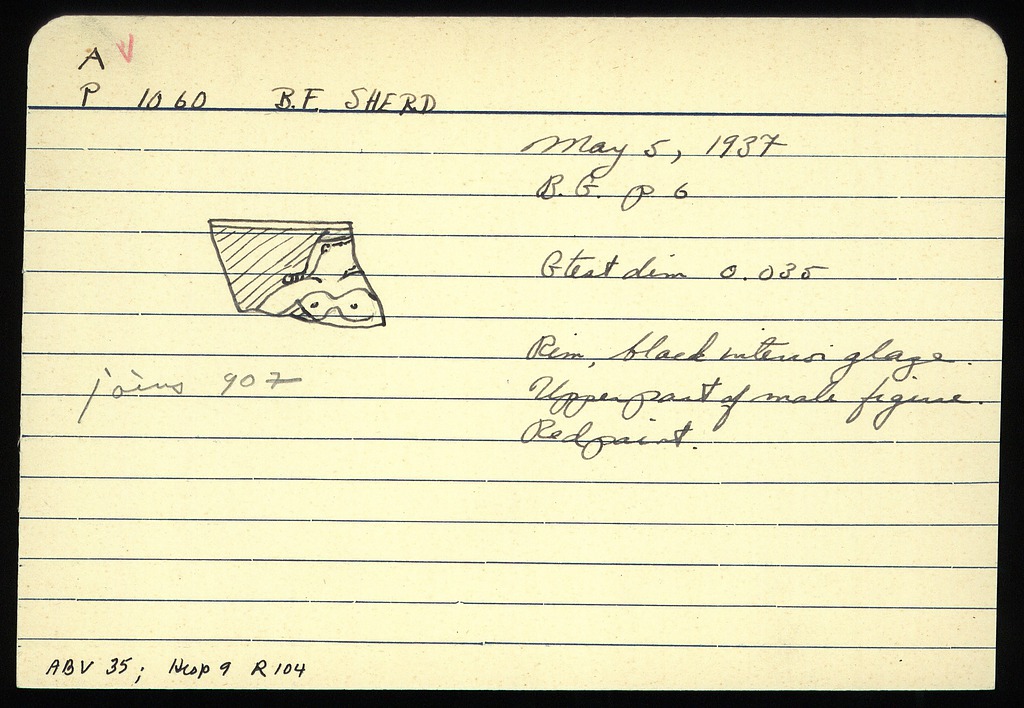 A
P 1060 B.F. SHERD
May 5, 1937
B.G. p 6
Gtest dim 0.035
Rim, black interior glaze.
Upper part of male figure.
Red paint.
joins 907
ABV 35; Hesp 9 R 104